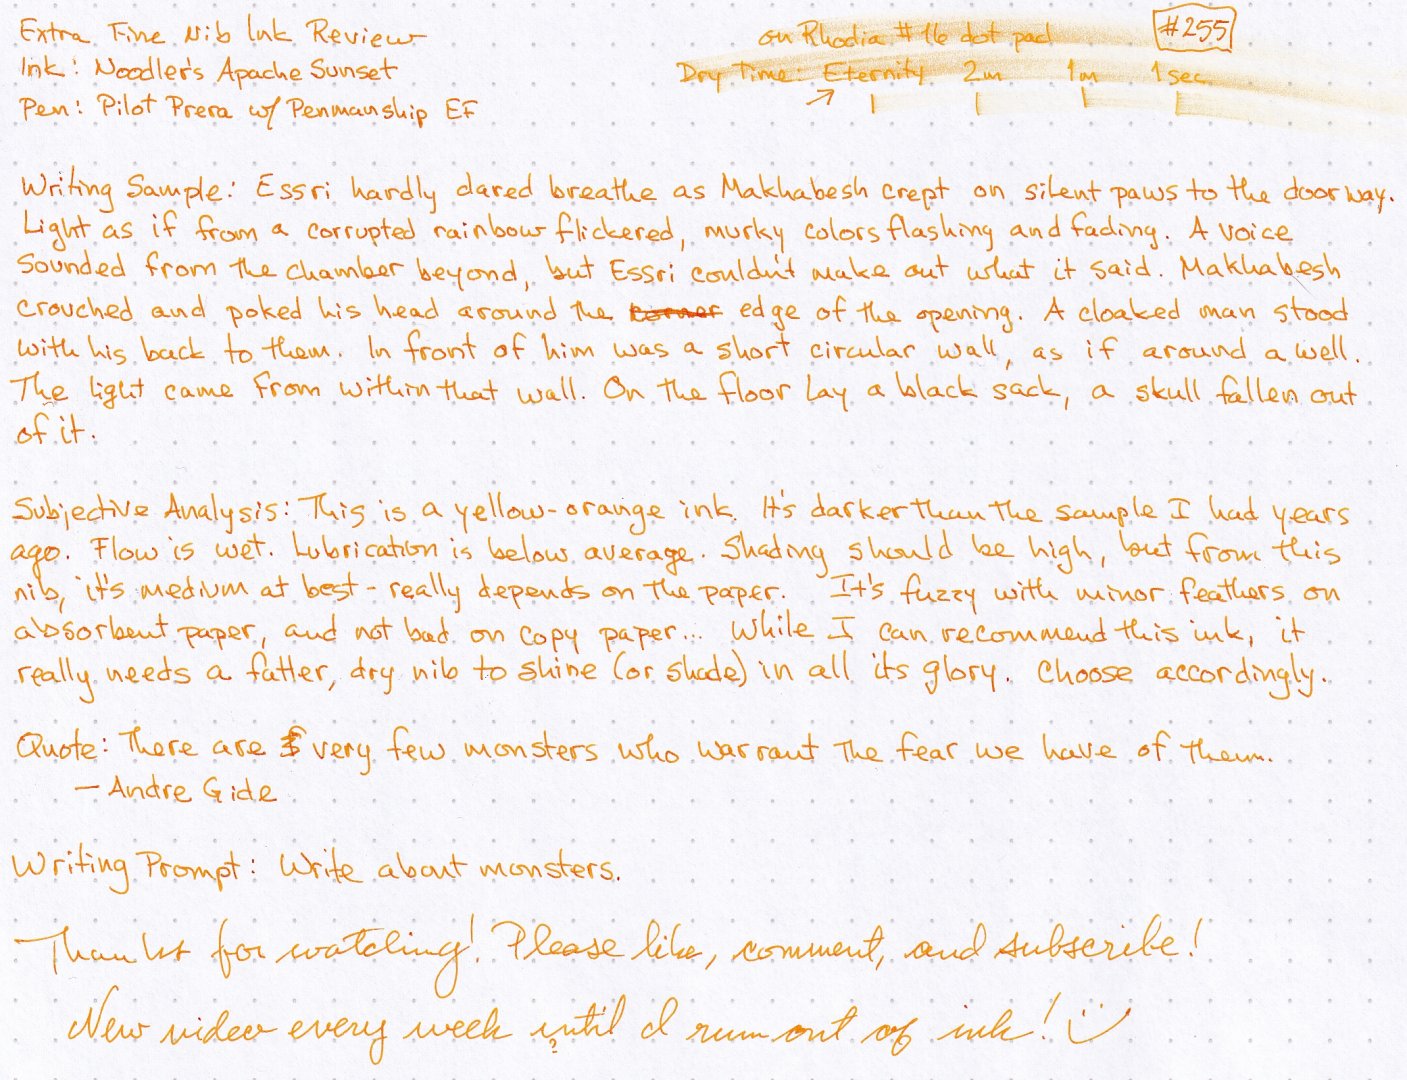 Extra Fine Nib Ink Review
on Rhodia #16 dot pad
#255
Ink: Noodler's Apache Sunset
Dry Time: Eternity 2m 1m 1 sec.
Pen: Pilot Prera w/ Penmanship EF
Writing Sample: Essri hardly dared breathe as Makhabesh crept on silent paws to the doorway.
Light as if from a corrupted rainbow flickered, murky colors flashing and fading. A voice
sounded from the chamber beyond, but Essri couldn't make out what it said. Makhabesh
crouched and poked his head around the corner edge of the opening. A cloaked man stood
with his back to them. In front of him was a short circular wall, as if around a well.
The light came from within that wall. On the floor lay a black sack, a skull fallen out
of it.
Subjective Analysis: This is a yellow-orange ink. It's darker than the sample I had years
ago. Flow is wet. Lubrication is below average. Shading should be high, but from this
nib, it's medium at best - really depends on the paper. It's fuzzy with minor feathers on
absorbent paper, and not bad on copy paper... While I can recommend this ink, it
really needs a fatter, dry nib to shine (or shade) in all its glory. Choose accordingly.
Quote: There are very few monsters who warrant the fear we have of them.
— Andre Gide
Writing Prompt: Write about monsters.
Thanks for watching! Please like, comment, and subscribe!
New video every week until I run out of ink! :)
?